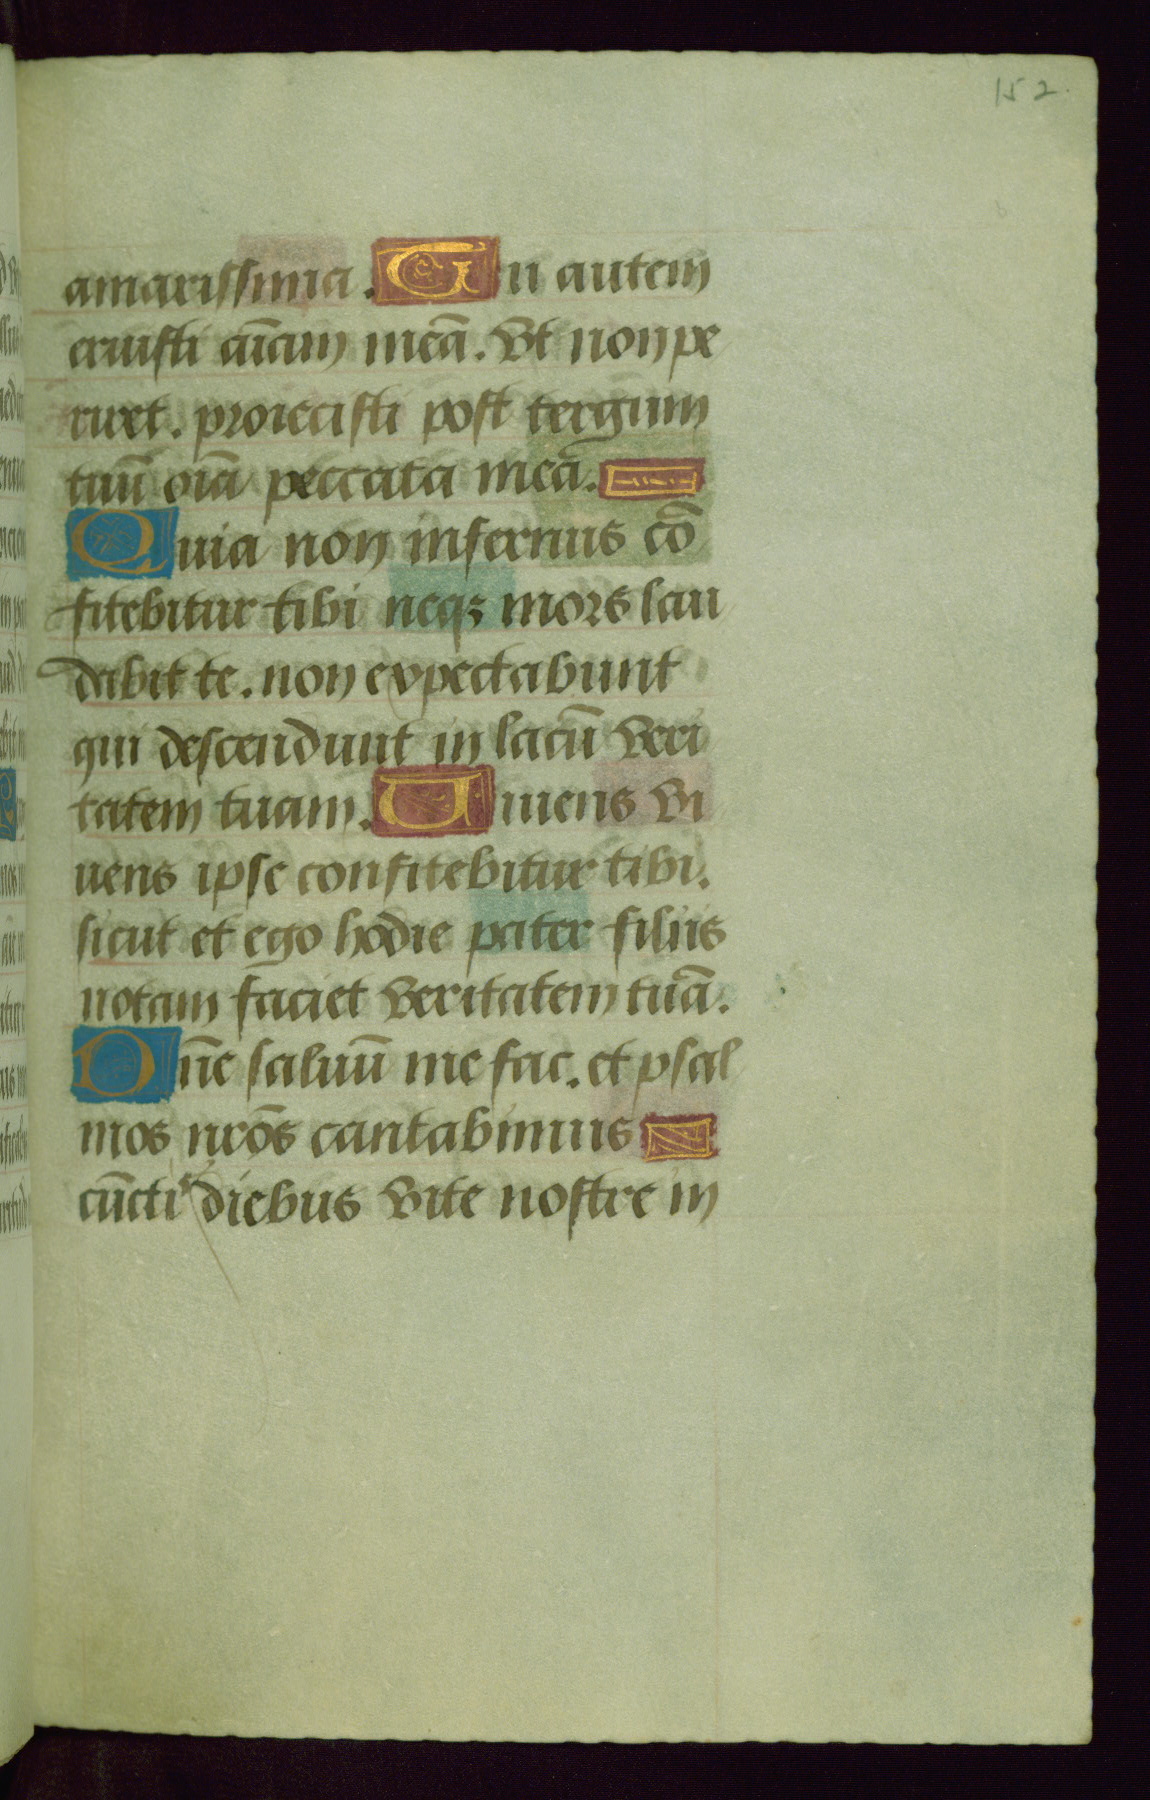 152.
amarissima. Tu autem
eruisti aīam meā. Vt non pe
riret. proiecisti post tergum
tuū oīa peccata mea.
Quia non infernus cō
fitebitur tibi neqꝫ mors lau
dabit te. non expectabunt
qui descendunt in lacū veri
tatem tuam. Viuens vi
uens ipse confitebitur tibi.
sicut et ego hodie pater filiis
notam faciet veritatem tuā.
Dn̄e saluū me fac. et psal
mos nr̄os cantabimus
cūctis diebus vite nostre in